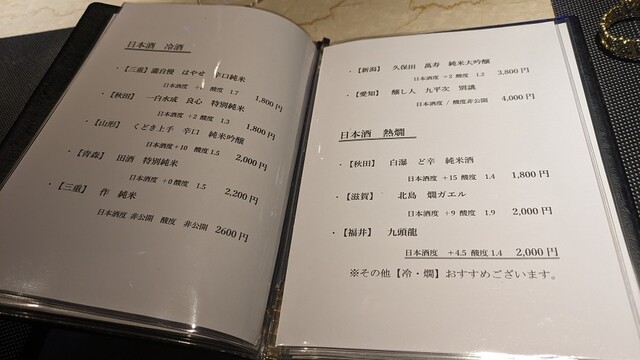 日本酒 冷酒
・【三重】瀧自慢 はやせ 辛口純米
酸度 1.7 1,800円
・【秋田】 一白水成 良心 特別純米
日本酒度 +2 酸度 1.3 1,800円
・【山形】 くどき上手 辛口 純米吟醸
日本酒度+10 酸度 1.5 2,000円
・【青森】 田酒 特別純米
日本酒度 +0 酸度 1.5 2,200円
・【三重】 作 純米
日本酒度 非公開 酸度 非公開 2600円
・【新潟】 久保田 萬寿 純米大吟醸
日本酒度 +2 酸度 1.2 3,800円
・【愛知】 醸し人 九平次 別誂
日本酒度 / 酸度非公開 4,000円
日本酒 熱燗
・【秋田】 白瀑 ど辛 純米酒
日本酒度 +15 酸度 1.4 1,800円
・【滋賀】 北島 燗ガエル
日本酒度 +9 酸度 1.9 2,000円
・【福井】 九頭龍
日本酒度 +4.5 酸度 1.4 2,000円
※その他【冷・燗】おすすめございます。